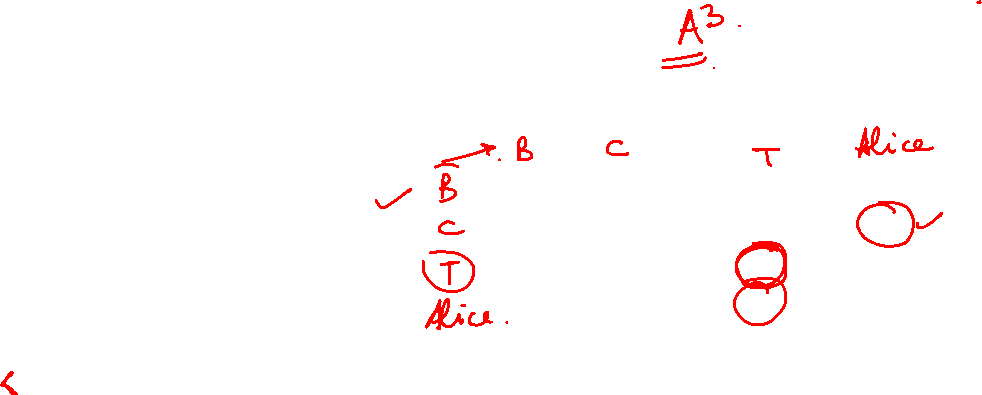 A³.
B C T Alice
B
C
T
Alice.